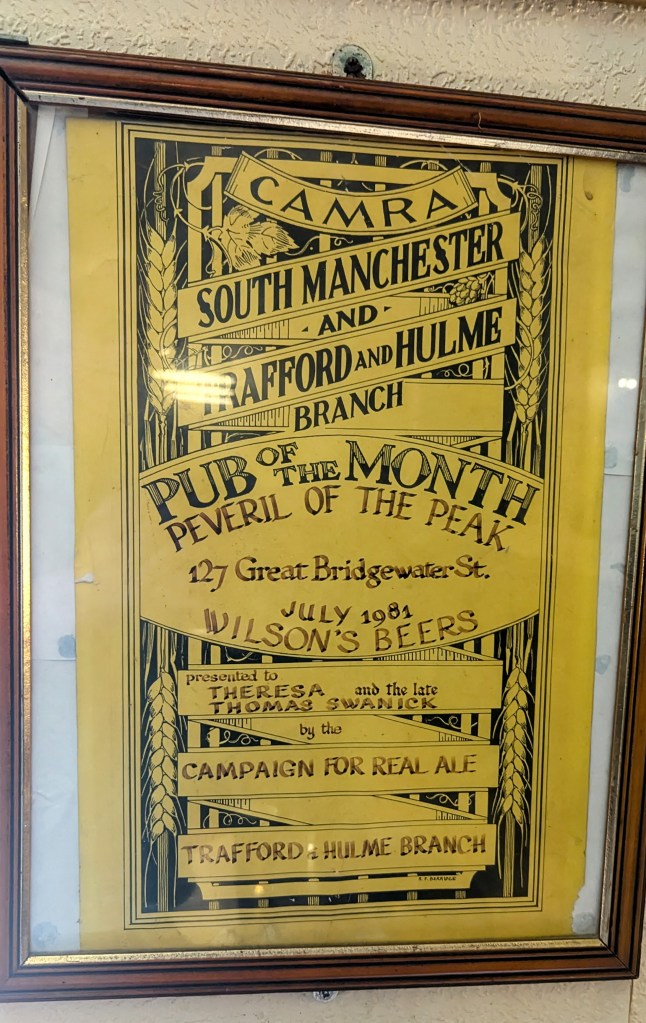 CAMRA
SOUTH MANCHESTER
· AND ·
TRAFFORD AND HULME
BRANCH
PUB OF THE MONTH
PEVERIL OF THE PEAK
127 Great Bridgewater St.
JULY 1981
WILSON'S BEERS
presented to
THERESA and the late
THOMAS SWANICK
by the
CAMPAIGN FOR REAL ALE
TRAFFORD & HULME BRANCH